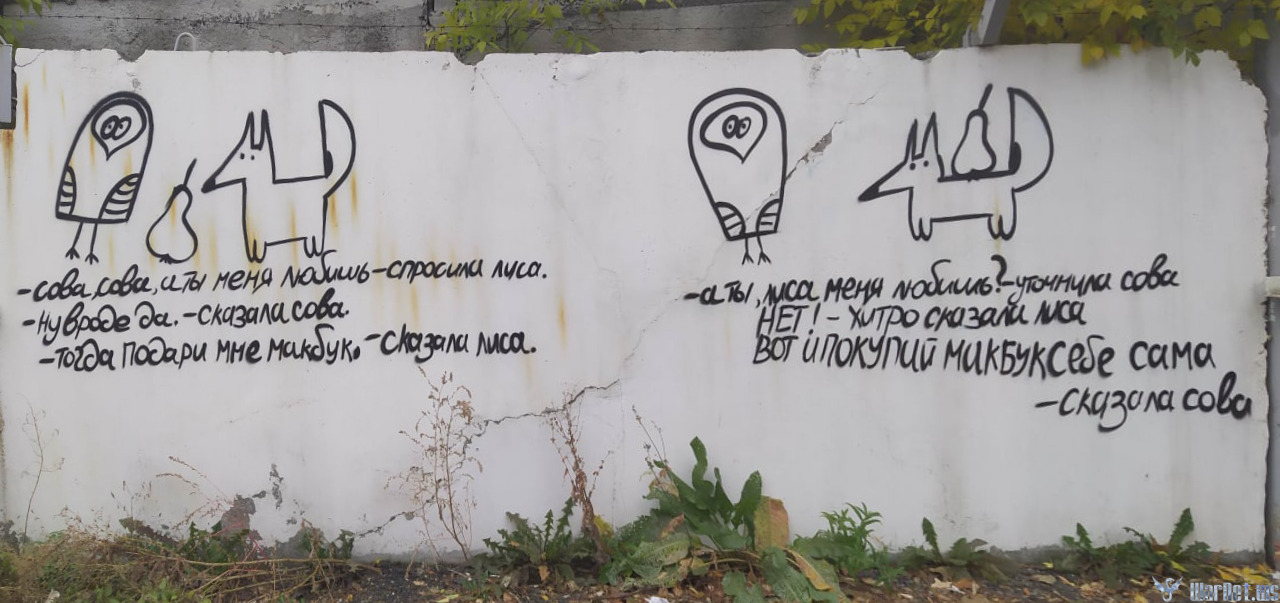 -сова, сова, а ты меня любишь -спросила лиса.
-Ну вроде да. -сказала сова.
-Тогда подари мне макбук. -сказала лиса.
-а ты, лиса меня любишь? -уточнила сова
НЕТ! - хитро сказала лиса
ВОТ И ПОКУПИЙ МАКБУК себе сама
-сказала сова
WarNet.ws